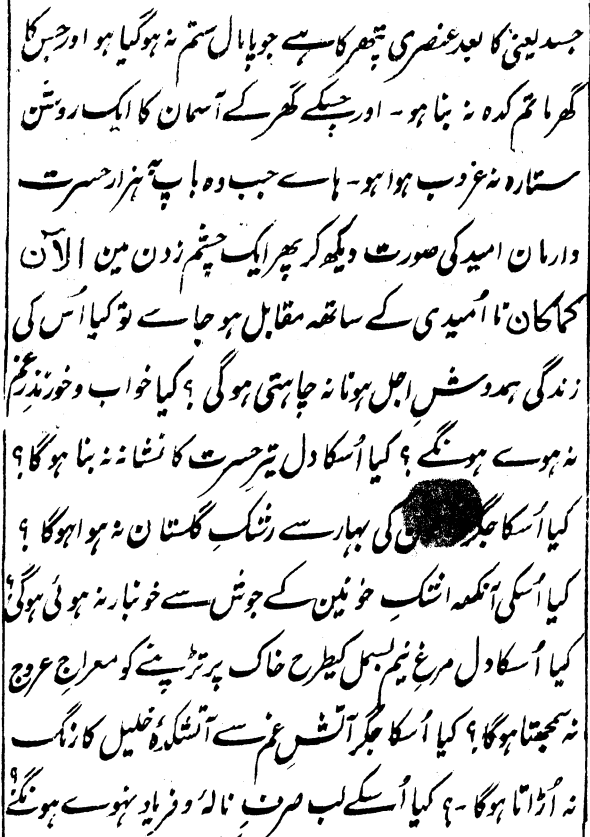 جسد یعنی کا بعد عنصری پتھر کا ہے جو پامال ستم نہ ہوگیا ہو اور جس کا
گھر ماتم کدہ نہ بنا ہو ۔ اور جسکے گھر کے آسمان کا ایک روشن
ستارہ نہ غروب ہوا ہو ۔ ہاے جب وہ باپ بہ ہزار حسرت
وارمان امید کی صورت دیکھ کر پھر ایک چشم زدن مین الآن
کماکان نا اُمیدی کے ساتھہ مقابل ہو جاے تو کیا اُس کی
زندگی ہمدوشِ اجل ہونا نہ چاہتی ہو گی ؟ کیا خواب و خور نذرِ غم
نہ ہوے ہونگے ؟ کیا اُسکا دل تیرِ حسرت کا نشانہ نہ بنا ہو گا ؟
کیا اُسکا جگر کی بہار سے رشکِ گلستان نہ ہوا ہوگا ؟
کیا اُسکی آنکھہ اشکِ خونین کے جوش سے خونبار نہ ہوئی ہوگی ؟
کیا اُسکا دل مرغِ نیم بسمل کیطرح خاک پر تڑپنے کو معراجِ عروج
نہ سمجھتا ہوگا ؟ کیا اُسکا جگر آتشِ غم سے آتشکدۂ خلیل کا رنگ
نہ اُڑاتا ہوگا ۔ ؟ کیا اُسکے لب صرفِ نالہ و فریاد نہوے ہونگے ؟